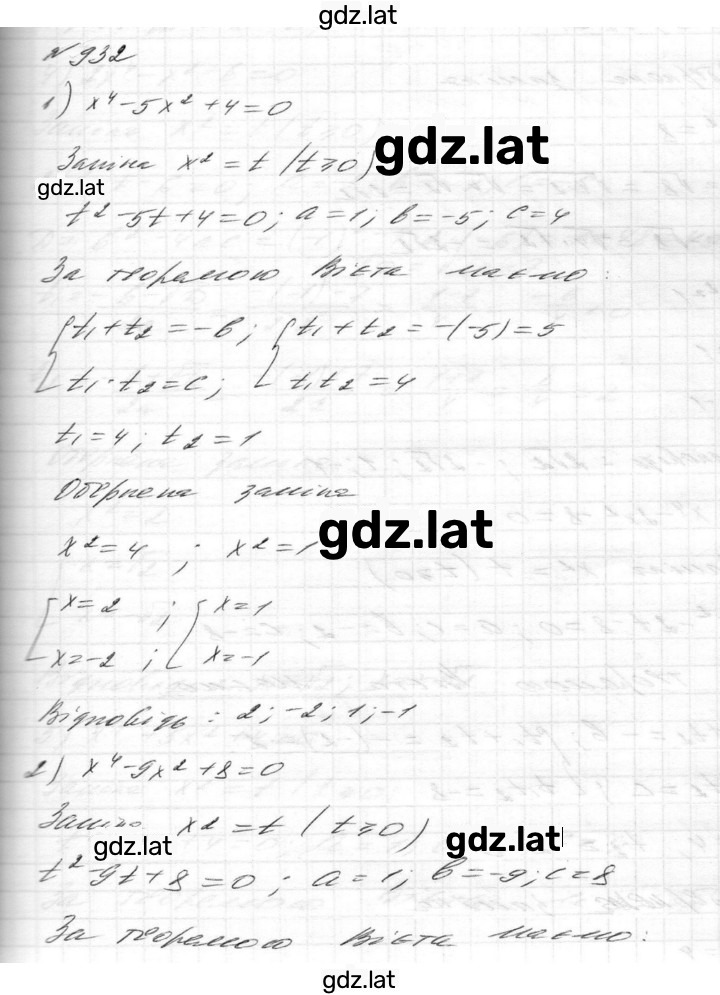 gdz.lat
№932
1) x⁴-5x²+4=0
Заміна x²=t (t≥0) gdz.lat
gdz.lat
t²-5t+4=0; a=1; b=-5; c=4
За теоремою Вієта маємо:
{t₁+t₂=-b; {t₁+t₂=-(-5)=5
t₁·t₂=c; t₁t₂=4
t₁=4; t₂=1
Обернена заміна
x²=4 ; x²=1 gdz.lat
[x=2 ; [x=1
x=-2 ; x=-1
Відповідь: 2; -2; 1; -1
2) x⁴-9x²+8=0
Заміна x²=t (t≥0) gdz.lat
gdz.lat
t²-9t+8=0; a=1; b=-9; c=8
За теоремою Вієта маємо:
gdz.lat